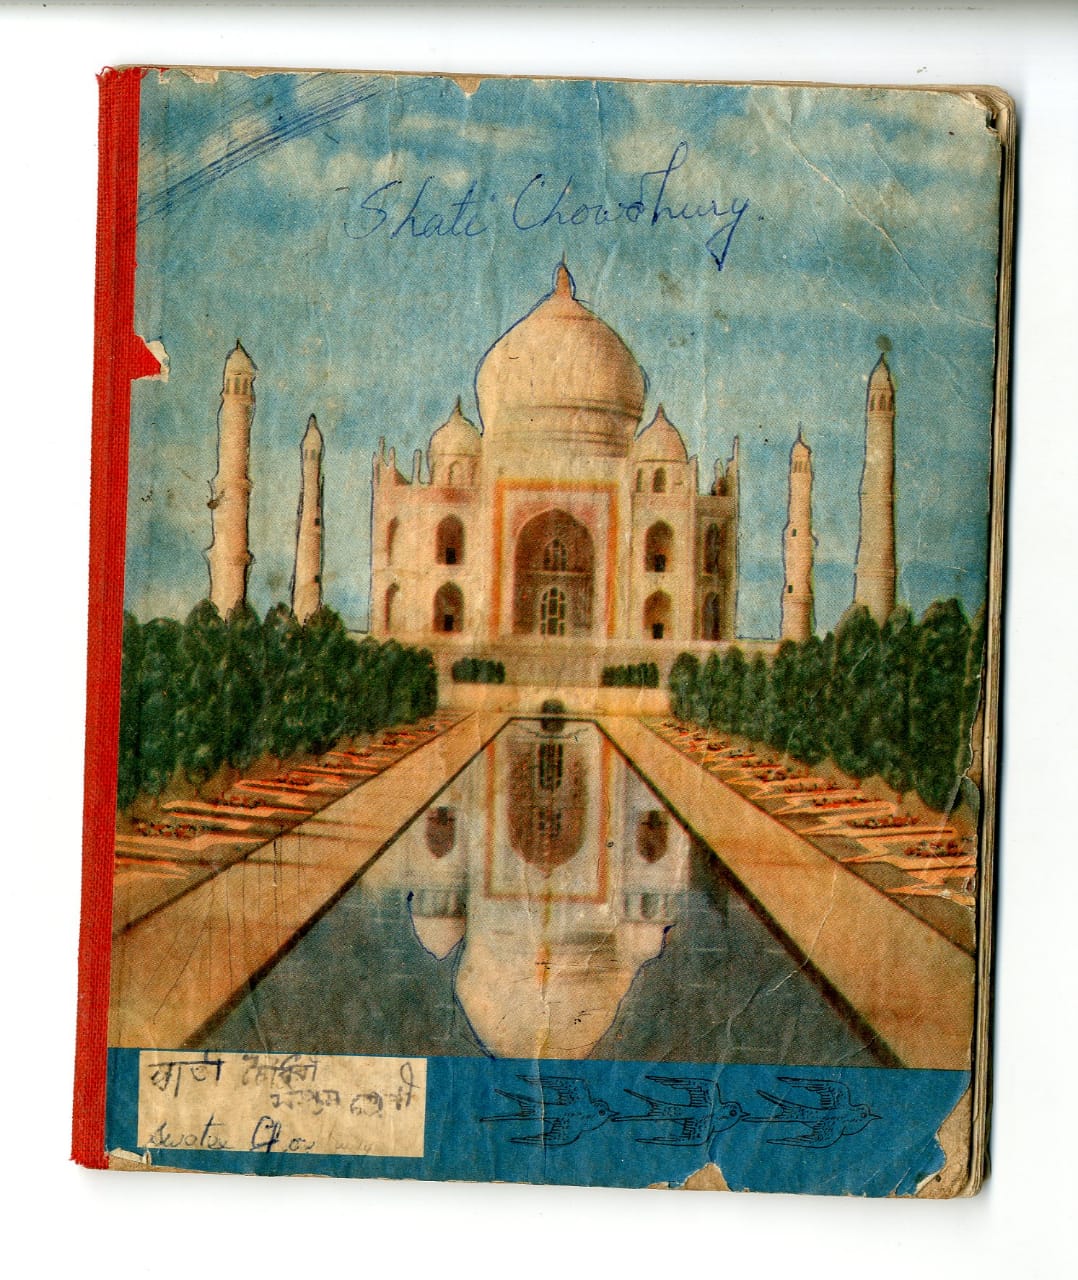 Shati Chowdhury.
স্বাতী চৌধুরী
শ্রেণী
Chowdhury